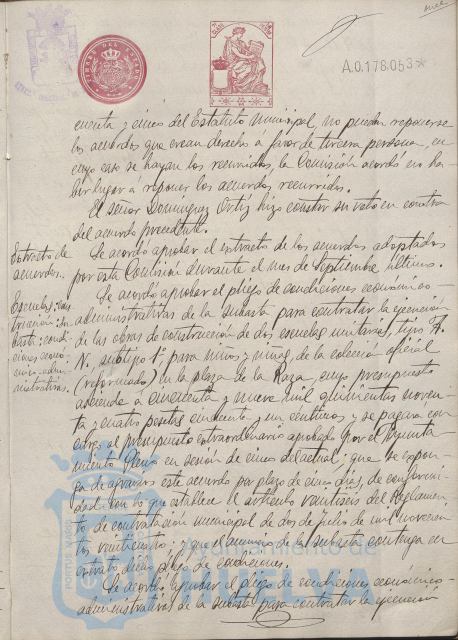 A.0.178.053*
TIMBRE DEL ESTADO
cuenta y cinco del Estatuto Municipal, no pueden reponerse
los acuerdos que crean derecho a favor de tercera persona, en
cuyo caso se hayan los recurridos, la Comisión acordó no ha-
ber lugar a reponer los acuerdos recurridos.
El señor Dominguez Ortiz hizo constar su voto en contra
del acuerdo precedente.
Extracto de
acuerdos.
Se acordó aprobar el extracto de los acuerdos adoptados
por esta Comisión durante el mes de Septiembre último.
Escuelas: cons
trucción: Su
basta: condi
ciones econo
mico-admi
nistrativas.
Se acordó aprobar el pliego de condiciones económico-
administrativas de la subasta para contratar la ejecución
de las obras de construcción de dos escuelas unitarias, tipo A.
N., subtipo 1º para niños y niñas, de la colección oficial
(reformado) en la plaza de la Raza, cuyo presupuesto
asciende a cincuenta y nueve mil quinientas noven-
ta y cuatro pesetas cincuenta y un centimos y se pagará con
cargo al presupuesto extraordinario aprobado por el Ayunta-
miento Pleno en sesión de cinco del actual; que se expon-
ga de agravios este acuerdo por plazo de cinco dias, de conformi-
dad con lo que establece el artículo veintiseis del Reglamento
de contratación municipal de dos de Julio de mil novecien-
tos veinticuatro; y que el anuncio de la subasta contenga en
extracto dicho pliego de condiciones.
Se acordó aprobar el pliego de condiciones económico-
administrativas de la subasta para contratar la ejecución
Ayuntamiento de
HUELVA